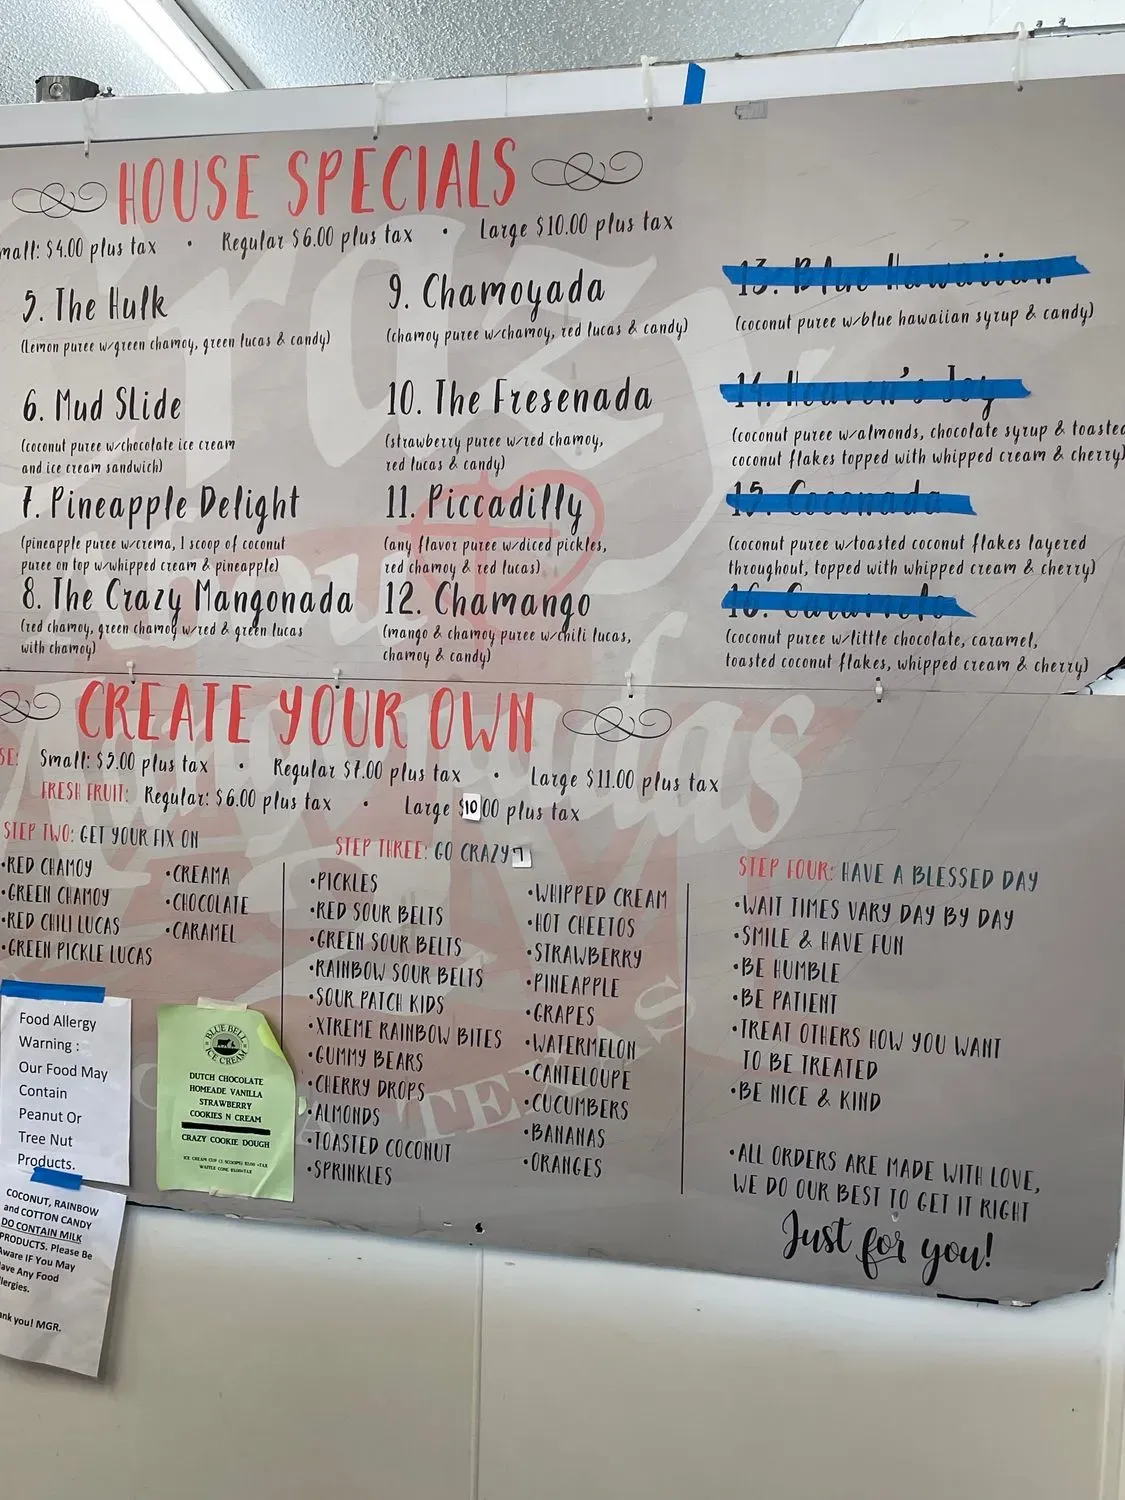 HOUSE SPECIALS
mall: $4.00 plus tax • Regular $6.00 plus tax • Large $10.00 plus tax
5. The Hulk
(lemon puree w/green chamoy, green lucas & candy)
6. Mud Slide
(coconut puree w/chocolate ice cream
and ice cream sandwich)
7. Pineapple Delight
(pineapple puree w/crema, 1 scoop of coconut
puree on top w/whipped cream & pineapple)
8. The Crazy Mangonada
(red chamoy, green chamoy w/red & green lucas
with chamoy)
9. Chamoyada
(chamoy puree w/chamoy, red lucas & candy)
10. The Fresenada
(strawberry puree w/red chamoy,
red lucas & candy)
11. Piccadilly
(any flavor puree w/diced pickles,
red chamoy & red lucas)
12. Chamango
(mango & chamoy puree w/chili lucas,
chamoy & candy)
13. Blue Hawaiian
(coconut puree w/blue hawaiian syrup & candy)
14. Heaven's Joy
(coconut puree w/almonds, chocolate syrup & toasted
coconut flakes topped with whipped cream & cherry)
15. Coconada
(coconut puree w/toasted coconut flakes layered
throughout, topped with whipped cream & cherry)
16.
(coconut puree w/little chocolate, caramel,
toasted coconut flakes, whipped cream & cherry)
CREATE YOUR OWN
SE: Small: $5.00 plus tax • Regular $7.00 plus tax • Large $11.00 plus tax
FRESH FRUIT: Regular: $6.00 plus tax • Large $10.00 plus tax
STEP TWO: GET YOUR FIX ON
•RED CHAMOY
•GREEN CHAMOY
•RED CHILI LUCAS
•GREEN PICKLE LUCAS
•CREAMA
•CHOCOLATE
•CARAMEL
STEP THREE: GO CRAZY 7
•PICKLES
•RED SOUR BELTS
•GREEN SOUR BELTS
•RAINBOW SOUR BELTS
•SOUR PATCH KIDS
•XTREME RAINBOW BITES
•GUMMY BEARS
•CHERRY DROPS
•ALMONDS
•TOASTED COCONUT
•SPRINKLES
•WHIPPED CREAM
•HOT CHEETOS
•STRAWBERRY
•PINEAPPLE
•GRAPES
•WATERMELON
•CANTELOUPE
•CUCUMBERS
•BANANAS
•ORANGES
STEP FOUR: HAVE A BLESSED DAY
•WAIT TIMES VARY DAY BY DAY
•SMILE & HAVE FUN
•BE HUMBLE
•BE PATIENT
•TREAT OTHERS HOW YOU WANT
TO BE TREATED
•BE NICE & KIND
•ALL ORDERS ARE MADE WITH LOVE,
WE DO OUR BEST TO GET IT RIGHT
Just for you!
Food Allergy
Warning :
Our Food May
Contain
Peanut Or
Tree Nut
Products.
COCONUT, RAINBOW
and COTTON CANDY
DO CONTAIN MILK
PRODUCTS. Please Be
Aware IF You May
ave Any Food
llergies.
ank you! MGR.
BLUE BELL
ICE CREAM
DUTCH CHOCOLATE
HOMEADE VANILLA
STRAWBERRY
COOKIES N CREAM
CRAZY COOKIE DOUGH